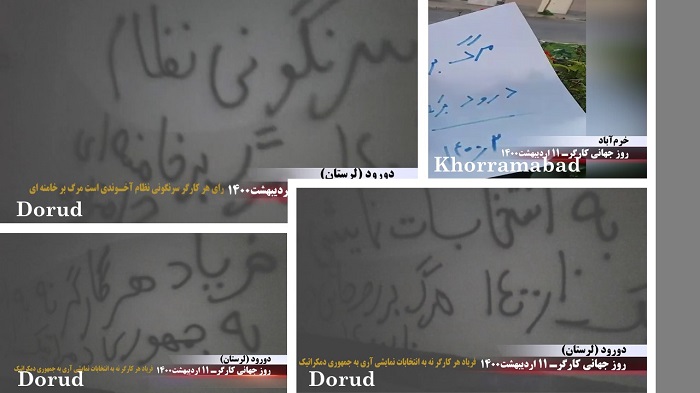 سرنگونی نظام
مرگ بر خامنه ای
دورود (لرستان)
اردیبهشت۱۴۰۰ رای هر کارگر سرنگونی نظام آخوندی است مرگ بر خامنه ای
Dorud
مرگ بر
درود بر
خرم‌آباد
روز جهانی کارگرــ ۱۱ اردیبهشت۱۴۰۰
Khorramabad
فریاد هر کارگر نه
به جمهوری
دورود (لرستان)
روز جهانی کارگرــ ۱۱ اردیبهشت۱۴۰۰ فریاد هر کارگر نه به انتخابات نمایشی آری به جمهوری دمکراتیک
Dorud
به انتخابات نمایشی
۱۴۰۰ مرگ بر
دورود (لرستان)
روز جهانی کارگرــ ۱۱ اردیبهشت۱۴۰۰ فریاد هر کارگر نه به انتخابات نمایشی آری به جمهوری دمکراتیک
Dorud